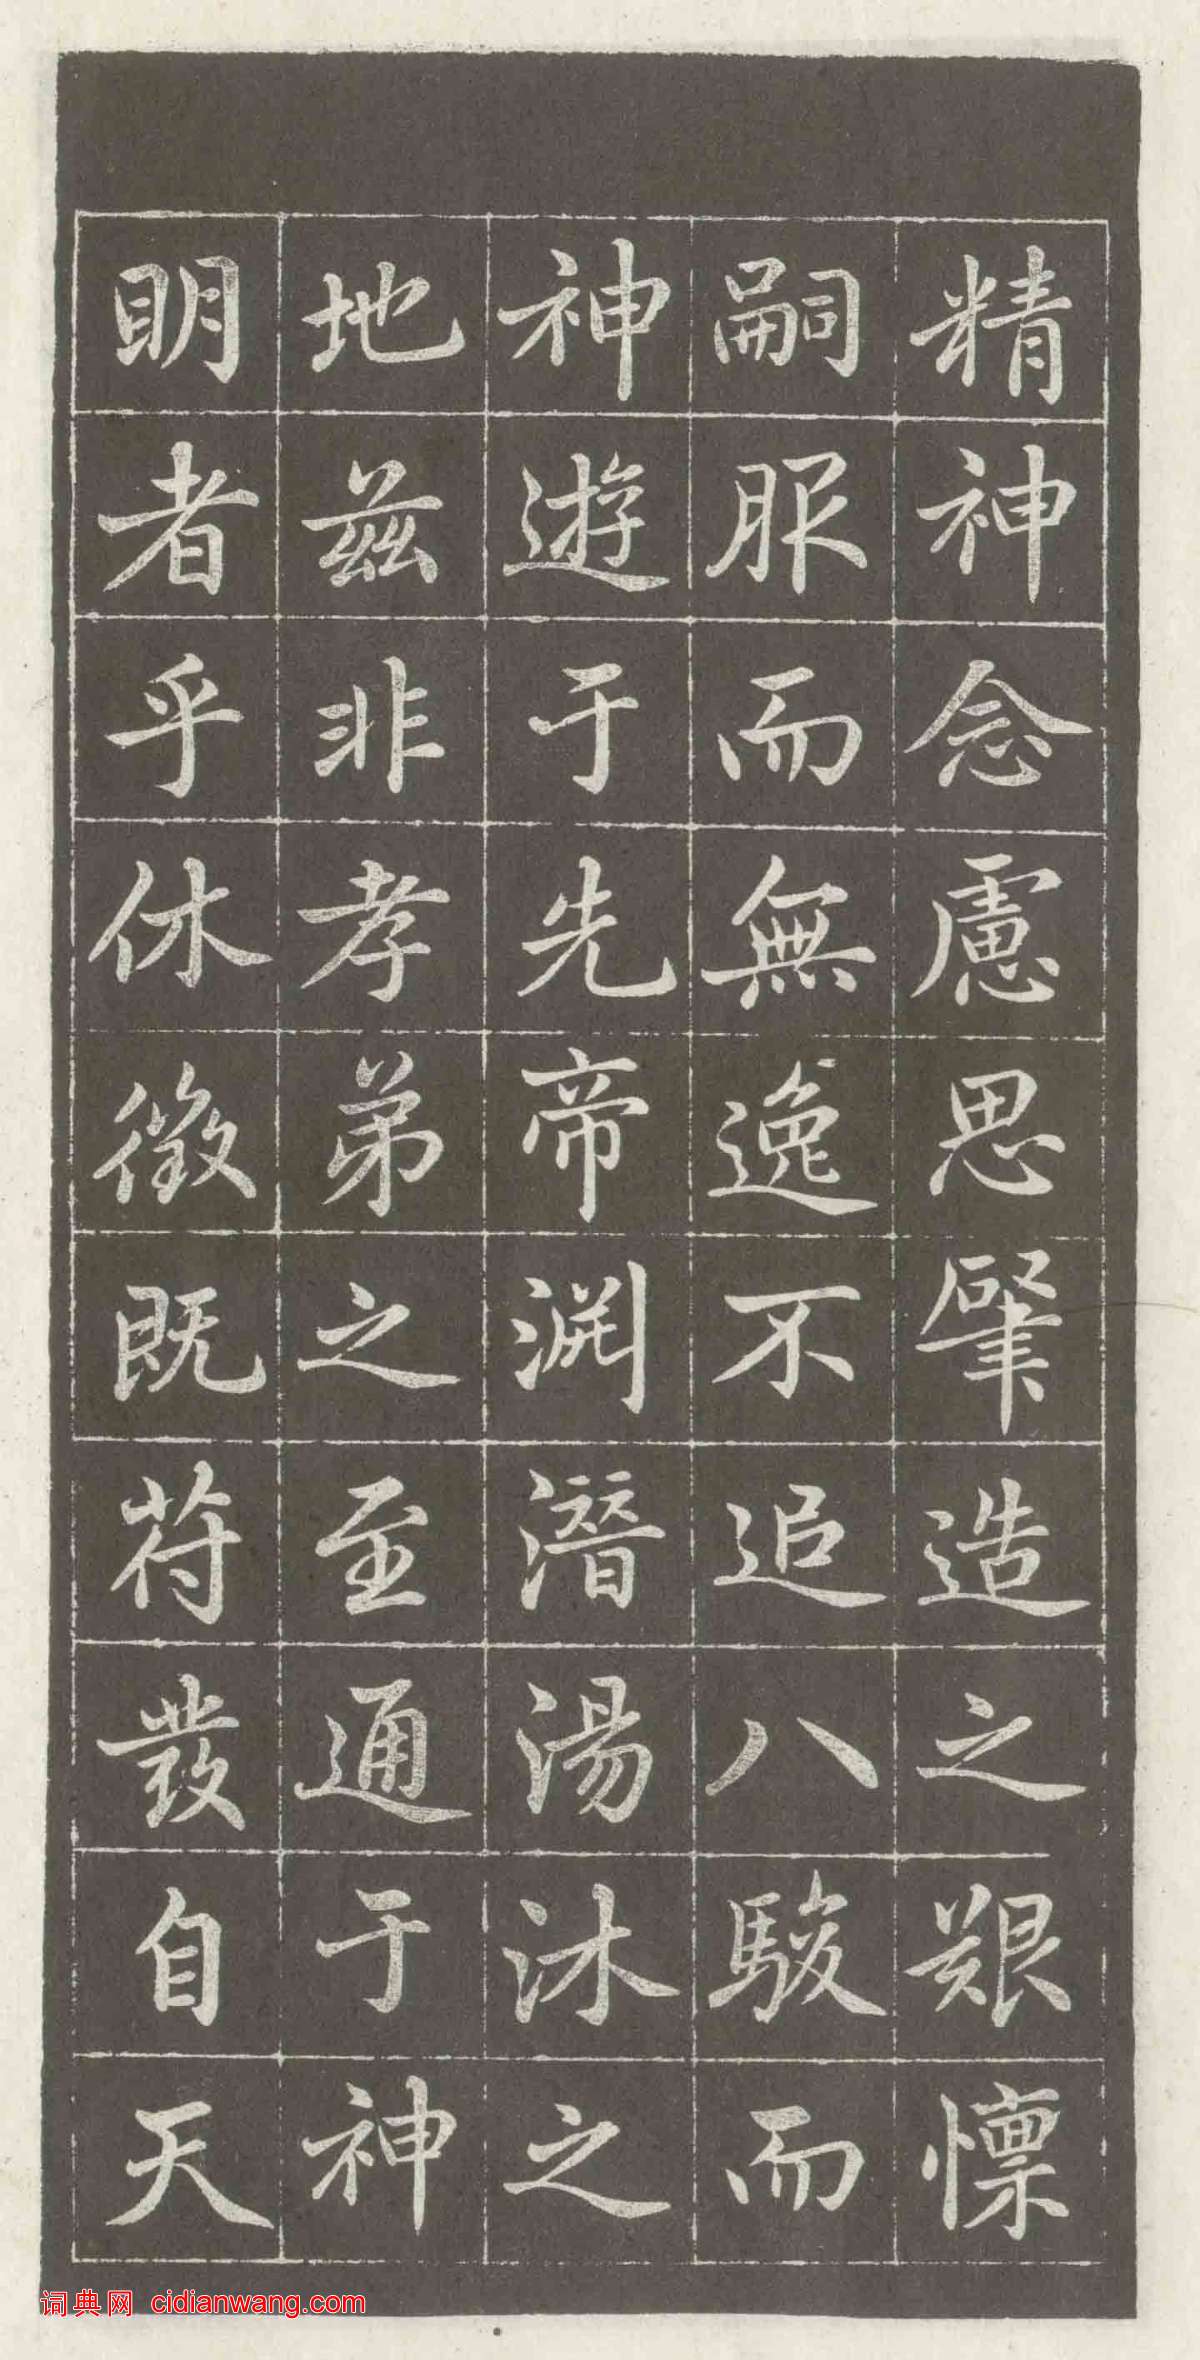 精神念慮思肇造之艱懍
嗣服而無逸不追八駿而
神遊于先帝渊潛湯沐之
地茲非孝弟之至通于神
明者乎休徵既苻發自天
词典网 cidianwang.com